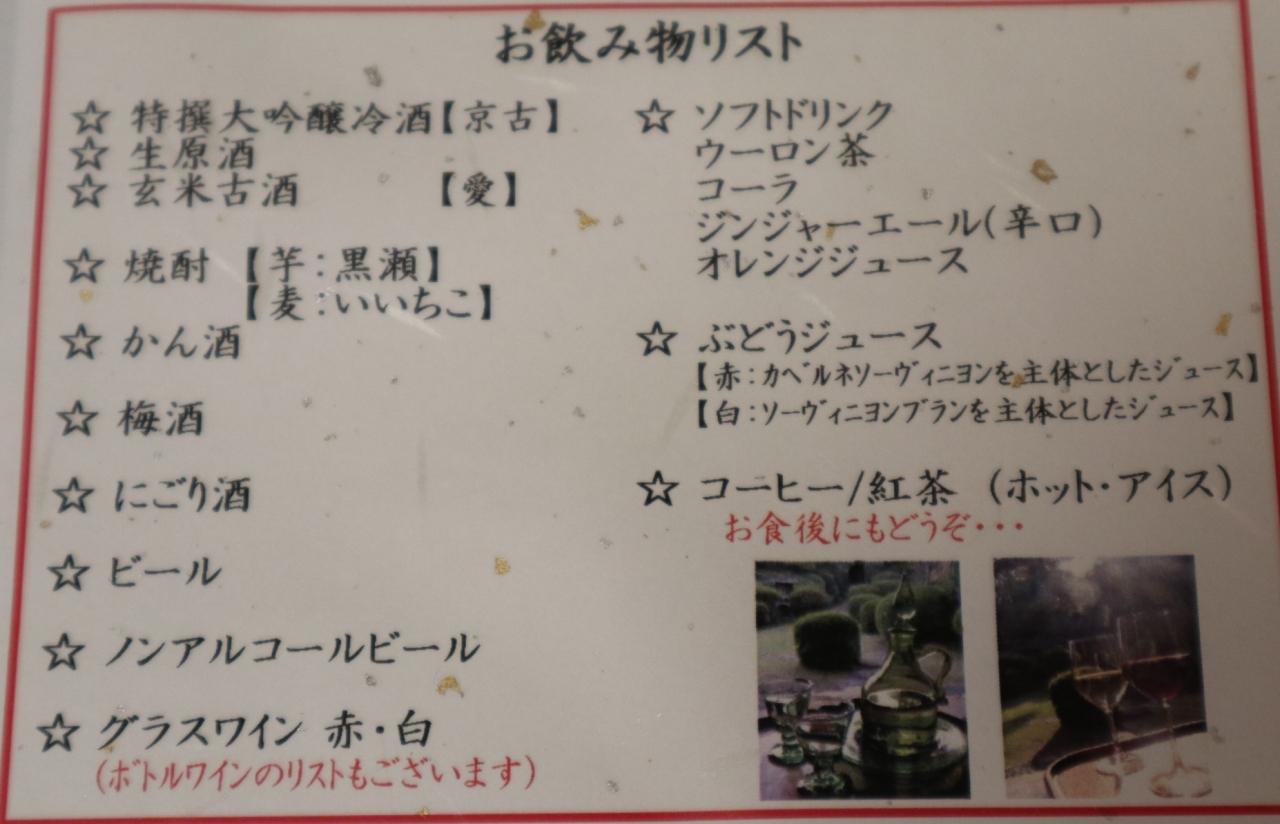 お飲み物リスト
☆ 特撰大吟醸冷酒【京古】
☆ 生原酒
☆ 玄米古酒 【愛】
☆ 焼酎 【芋:黒瀬】
【麦:いいちこ】
☆ かん酒
☆ 梅酒
☆ にごり酒
☆ ビール
☆ ノンアルコールビール
☆ グラスワイン 赤・白
(ボトルワインのリストもございます)
☆ ソフトドリンク
ウーロン茶
コーラ
ジンジャーエール(辛口)
オレンジジュース
☆ ぶどうジュース
【赤:カベルネソーヴィニヨンを主体としたジュース】
【白:ソーヴィニヨンブランを主体としたジュース】
☆ コーヒー/紅茶 (ホット・アイス)
お食後にもどうぞ・・・